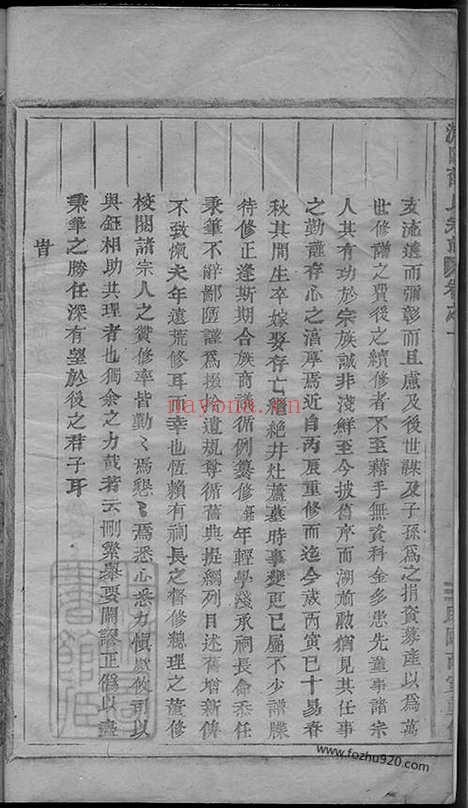 支流遠而彌彰而且慮及後世謀及子孫為之捐資募產以為萬
世修譜之費後之續修者不至藉手無資科金多患先達事諸宗
人其有功於宗族誠非淺鮮至今披舊序而湖前猷猶見其任事
之勤謹存心之篤厚焉近自丙辰重修而迄今歲丙寅已十易春
秋其間生卒嫁娶存亡繼絕井灶蘆墓時事變更已屬不少譜牒
待修正逢斯期合族商議循例纂修鈺年輕學淺承祠長命委任
秉筆不辭鄙陋謹為掇拾遺規尊循舊典提綱列目述舊增新俾
不致慨夫年遠荒修耳而幸也恆賴有祠長之督修總理之董修
校閱諸宗人之贊修率皆勤〻焉懇〻焉悉心悉力慎厥攸司以
與鈺相助共理者也獨余之力哉若云刪繁舉要闢謬正偽以盡
秉筆之勝任深有望於後之君子耳
旹
nayona.cn
www.fozhu920.com